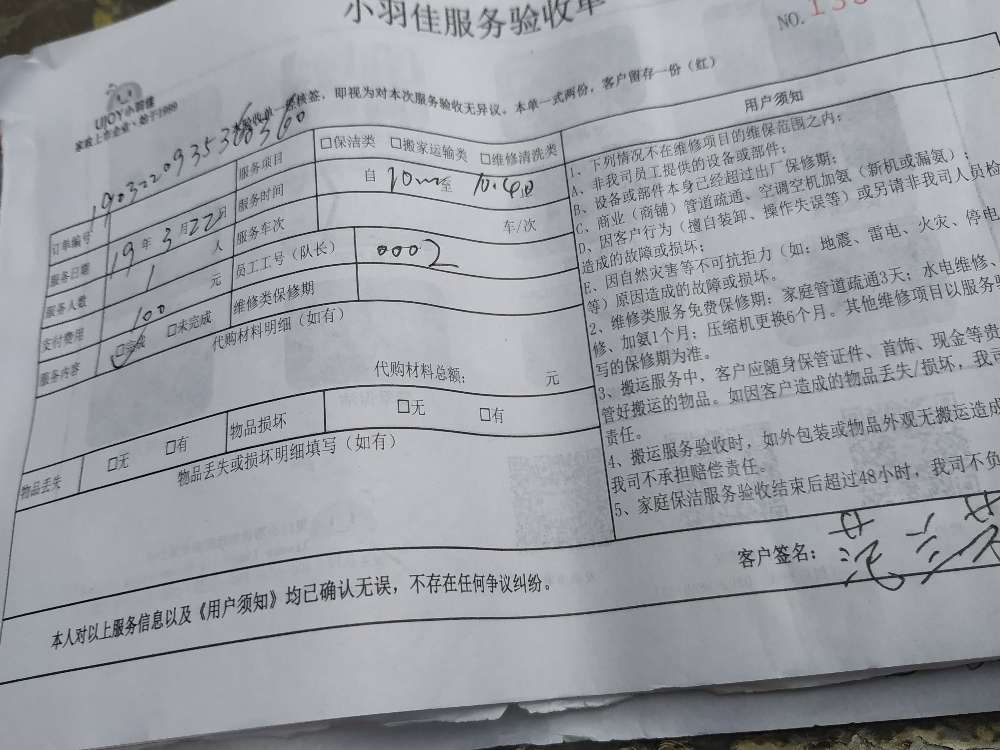 小羽佳服务验收单
NO.
UJOY小羽佳
家政上市企业·始于1989
本验收单一经核签，即视为对本次服务验收无异议。本单一式两份，客户留存一份（红）
订单编号 190322093536836
服务项目 □保洁类 □搬家运输类 □维修清洗类
服务日期 19年3月22日
服务时间 自 至 10.40
服务人数 1 人
服务车次 车/次
支付费用 100 元
员工工号（队长） 0002
服务内容 □完成 □未完成
维修类保修期
代购材料明细（如有）
代购材料总额： 元
物品丢失 □无 □有
物品损坏 □无 □有
物品丢失或损坏明细填写（如有）
用户须知
1、下列情况不在维修项目的维保范围之内：
A、非我司员工提供的设备或部件；
B、设备或部件本身已经超过出厂保修期；
C、商业（商铺）管道疏通、空调空机加氨（新机或漏氨）；
D、因客户行为（擅自装卸、操作失误等）或另请非我司人员检
造成的故障或损坏；
E、因自然灾害等不可抗拒力（如：地震、雷电、火灾、停电
等）原因造成的故障或损坏。
2、维修类服务免费保修期：家庭管道疏通3天；水电维修、
修、加氨1个月；压缩机更换6个月。其他维修项目以服务
写的保修期为准。
3、搬运服务中，客户应随身保管证件、首饰、现金等贵
管好搬运的物品。如因客户造成的物品丢失/损坏，我司
责任。
4、搬运服务验收时，如外包装或物品外观无搬运造成
我司不承担赔偿责任。
5、家庭保洁服务验收结束后超过48小时，我司不负
客户签名：
本人对以上服务信息以及《用户须知》均已确认无误，不存在任何争议纠纷。